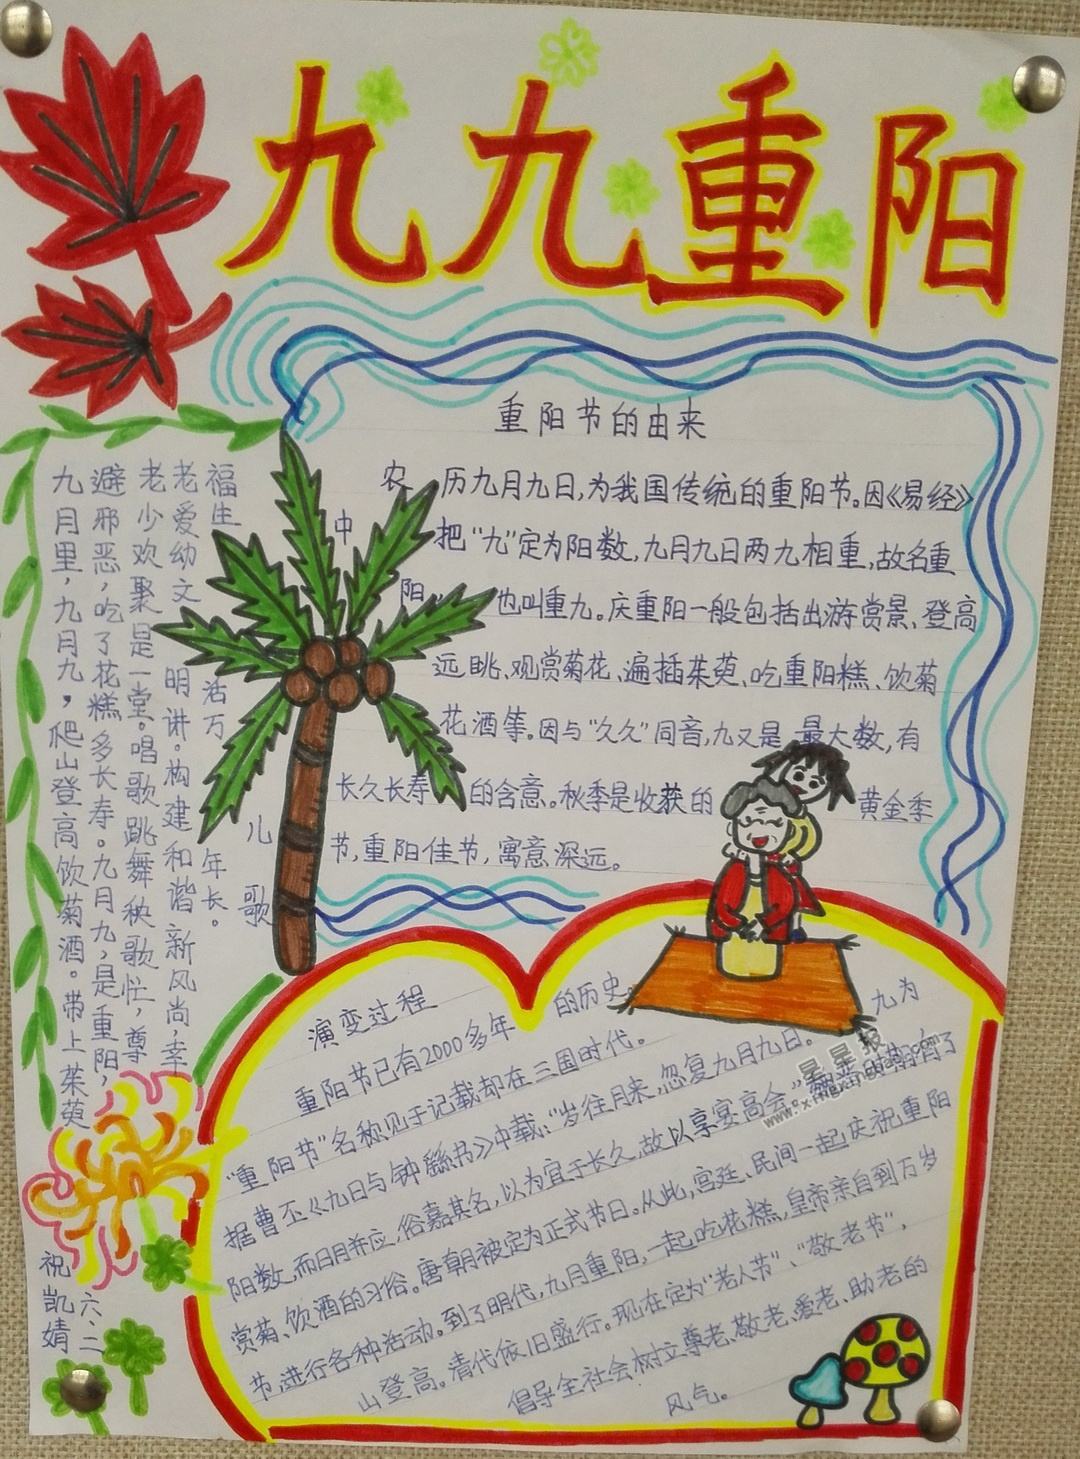 九九重阳
重阳节的由来
农历九月九日,为我国传统的重阳节。因《易经》
中把“九”定为阳数,九月九日两九相重,故名重
阳,也叫重九。庆重阳一般包括出游赏景、登高
远眺、观赏菊花、遍插茱萸、吃重阳糕、饮菊
花酒等。因与“久久”同音,九又是最大数,有
长久长寿的含意。秋季是收获的黄金季
节,重阳佳节,寓意深远。
儿歌
九月里,九月九,爬山登高饮菊酒。带上茱萸
避邪恶,吃了花糕多长寿。九月九,是重阳,
老少欢聚是一堂。唱歌跳舞秧歌忙,尊
老爱幼文明讲。构建和谐新风尚,幸
福生活万年长。
演变过程
重阳节已有2000多年的历史
“重阳节”名称见于记载却在三国时代。
据曹丕《九日与钟繇书》中载:“岁往月来,忽复九月九日。九为
阳数,而日月并应,俗嘉其名,以为宜于长久,故以享宴高会。”
赏菊、饮酒的习俗。唐朝被定为正式节日。从此,宫廷、民间一起庆祝重阳
节,进行各种活动。到了明代,九月重阳,一起吃花糕,皇帝亲自到万岁
山登高。清代依旧盛行。现在定为“老人节”、“敬老节”,
倡导全社会树立尊老、敬老、爱老、助老的
风气。
祝凯婧
六、二
星星报
www.xingxingbao.com